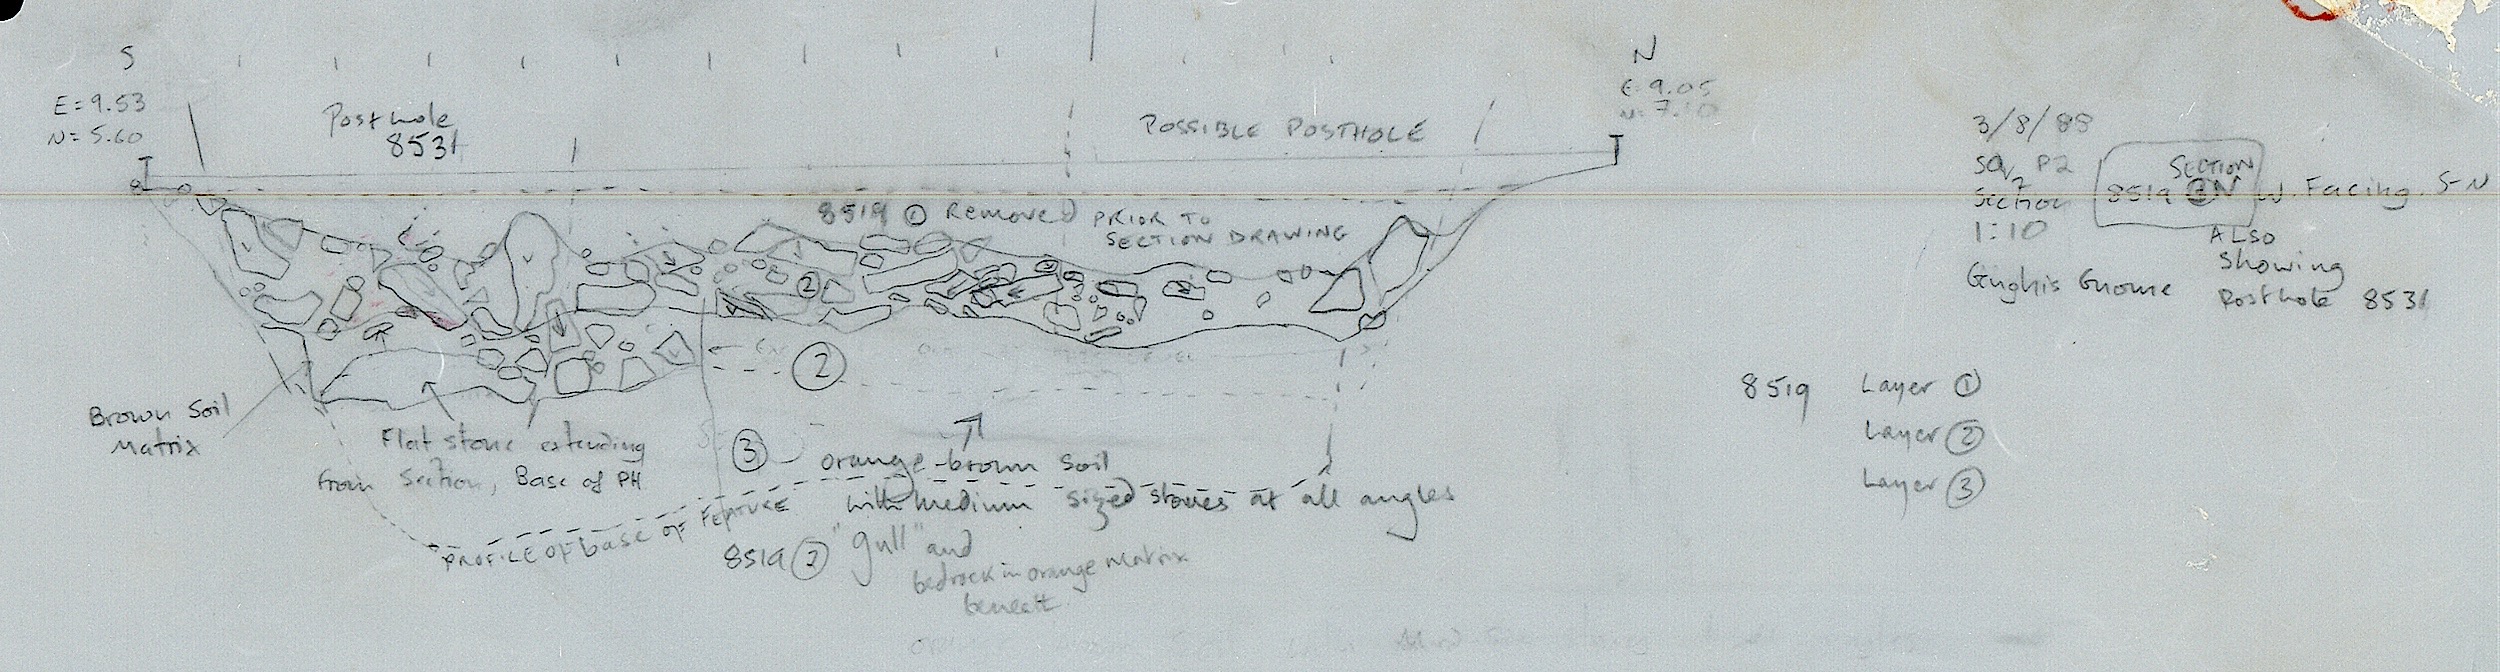 S
N
E=9.53
N=5.60
E 9.05
N: 7.10
Posthole
8531
POSSIBLE POSTHOLE
3/8/88
SQ P2
Section
1:10
Genghis Gnome
SECTION
8519
W. Facing. S-N
ALSO
showing
Posthole 8531
8519 ① Removed PRIOR TO
SECTION DRAWING
②
②
8519 Layer ①
Layer ②
Layer ③
Brown Soil
Matrix
Flat stone extending
from Section, Base of PH
③
orange-brown soil
with medium sized stones at all angles
PROFILE OF base OF FEATURE
8519 ② "gull" and
bedrock in orange matrix
beneath